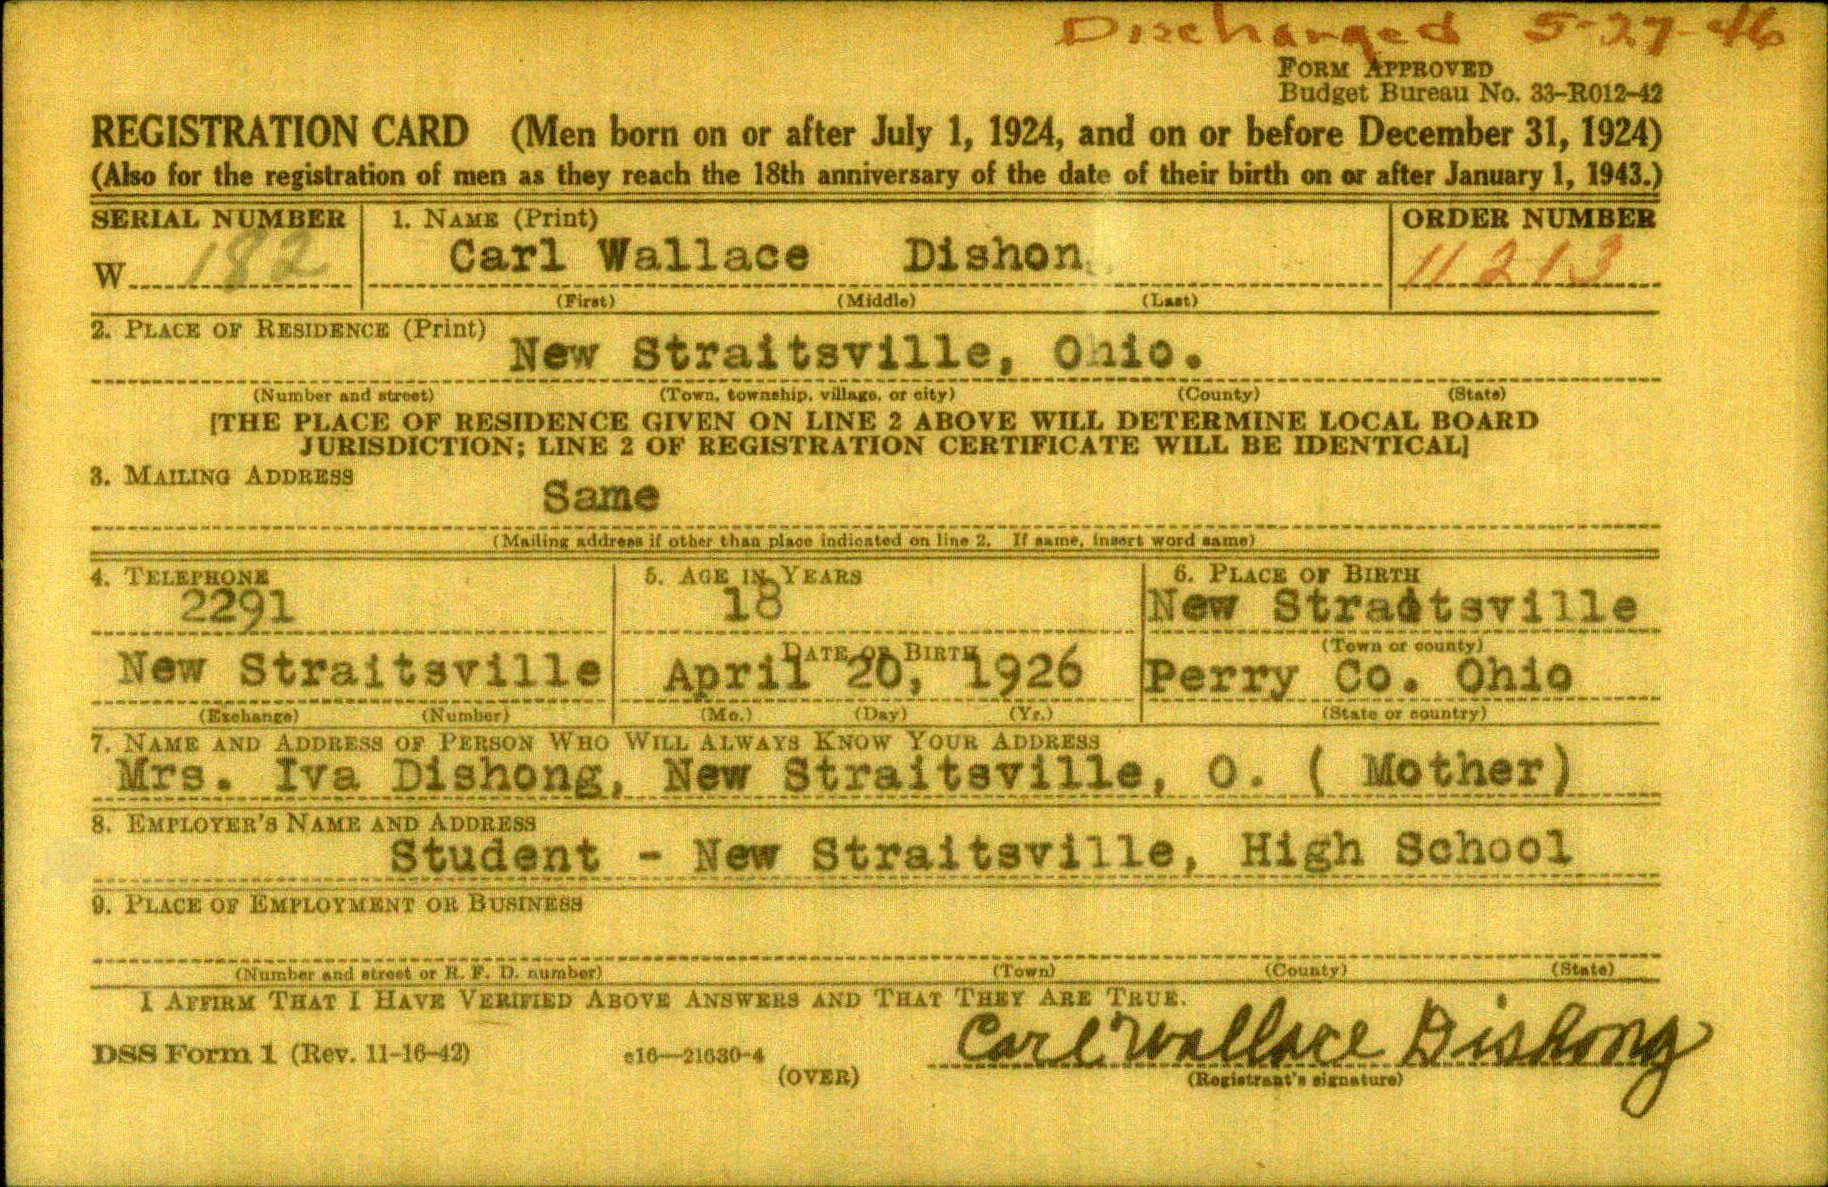 Discharged 5-27-46
FORM APPROVED
Budget Bureau No. 33-R012-42
REGISTRATION CARD (Men born on or after July 1, 1924, and on or before December 31, 1924)
(Also for the registration of men as they reach the 18th anniversary of the date of their birth on or after January 1, 1943.)
SERIAL NUMBER 1. NAME (Print) ORDER NUMBER
W 182 Carl Wallace Dishon 11213
(First) (Middle) (Last)
2. PLACE OF RESIDENCE (Print)
New Straitsville, Ohio.
(Number and street) (Town, township, village, or city) (County) (State)
[THE PLACE OF RESIDENCE GIVEN ON LINE 2 ABOVE WILL DETERMINE LOCAL BOARD
JURISDICTION; LINE 2 OF REGISTRATION CERTIFICATE WILL BE IDENTICAL]
3. MAILING ADDRESS
Same
(Mailing address if other than place indicated on line 2. If same, insert word same)
4. TELEPHONE 5. AGE IN YEARS 6. PLACE OF BIRTH
2291 18 New Straitsville
DATE OF BIRTH (Town or county)
New Straitsville April 20, 1926 Perry Co. Ohio
(Exchange) (Number) (Mo.) (Day) (Yr.) (State or country)
7. NAME AND ADDRESS OF PERSON WHO WILL ALWAYS KNOW YOUR ADDRESS
Mrs. Iva Dishong, New Straitsville, O. ( Mother)
8. EMPLOYER'S NAME AND ADDRESS
Student - New Straitsville, High School
9. PLACE OF EMPLOYMENT OR BUSINESS
(Number and street or R. F. D. number) (Town) (County) (State)
I AFFIRM THAT I HAVE VERIFIED ABOVE ANSWERS AND THAT THEY ARE TRUE.
Carl Wallace Dishong
DSS Form 1 (Rev. 11-16-42) c16—21630-4
(OVER) (Registrant's signature)